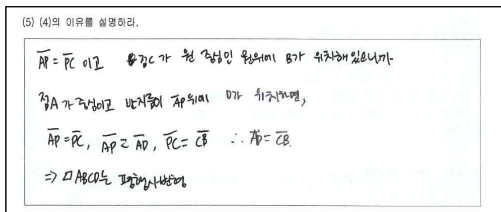 (5) (4)의 이유를 설명하라.
AP = PC 이고 점C가 원 중심인 원위에 B가 위치해 있으니까
점A가 중심이고 반지름이 AP위에 D가 위치하면,
AP = PC, AP = AD, PC = CB ∴ AD = CB.
⇒ □ABCD는 평행사변형